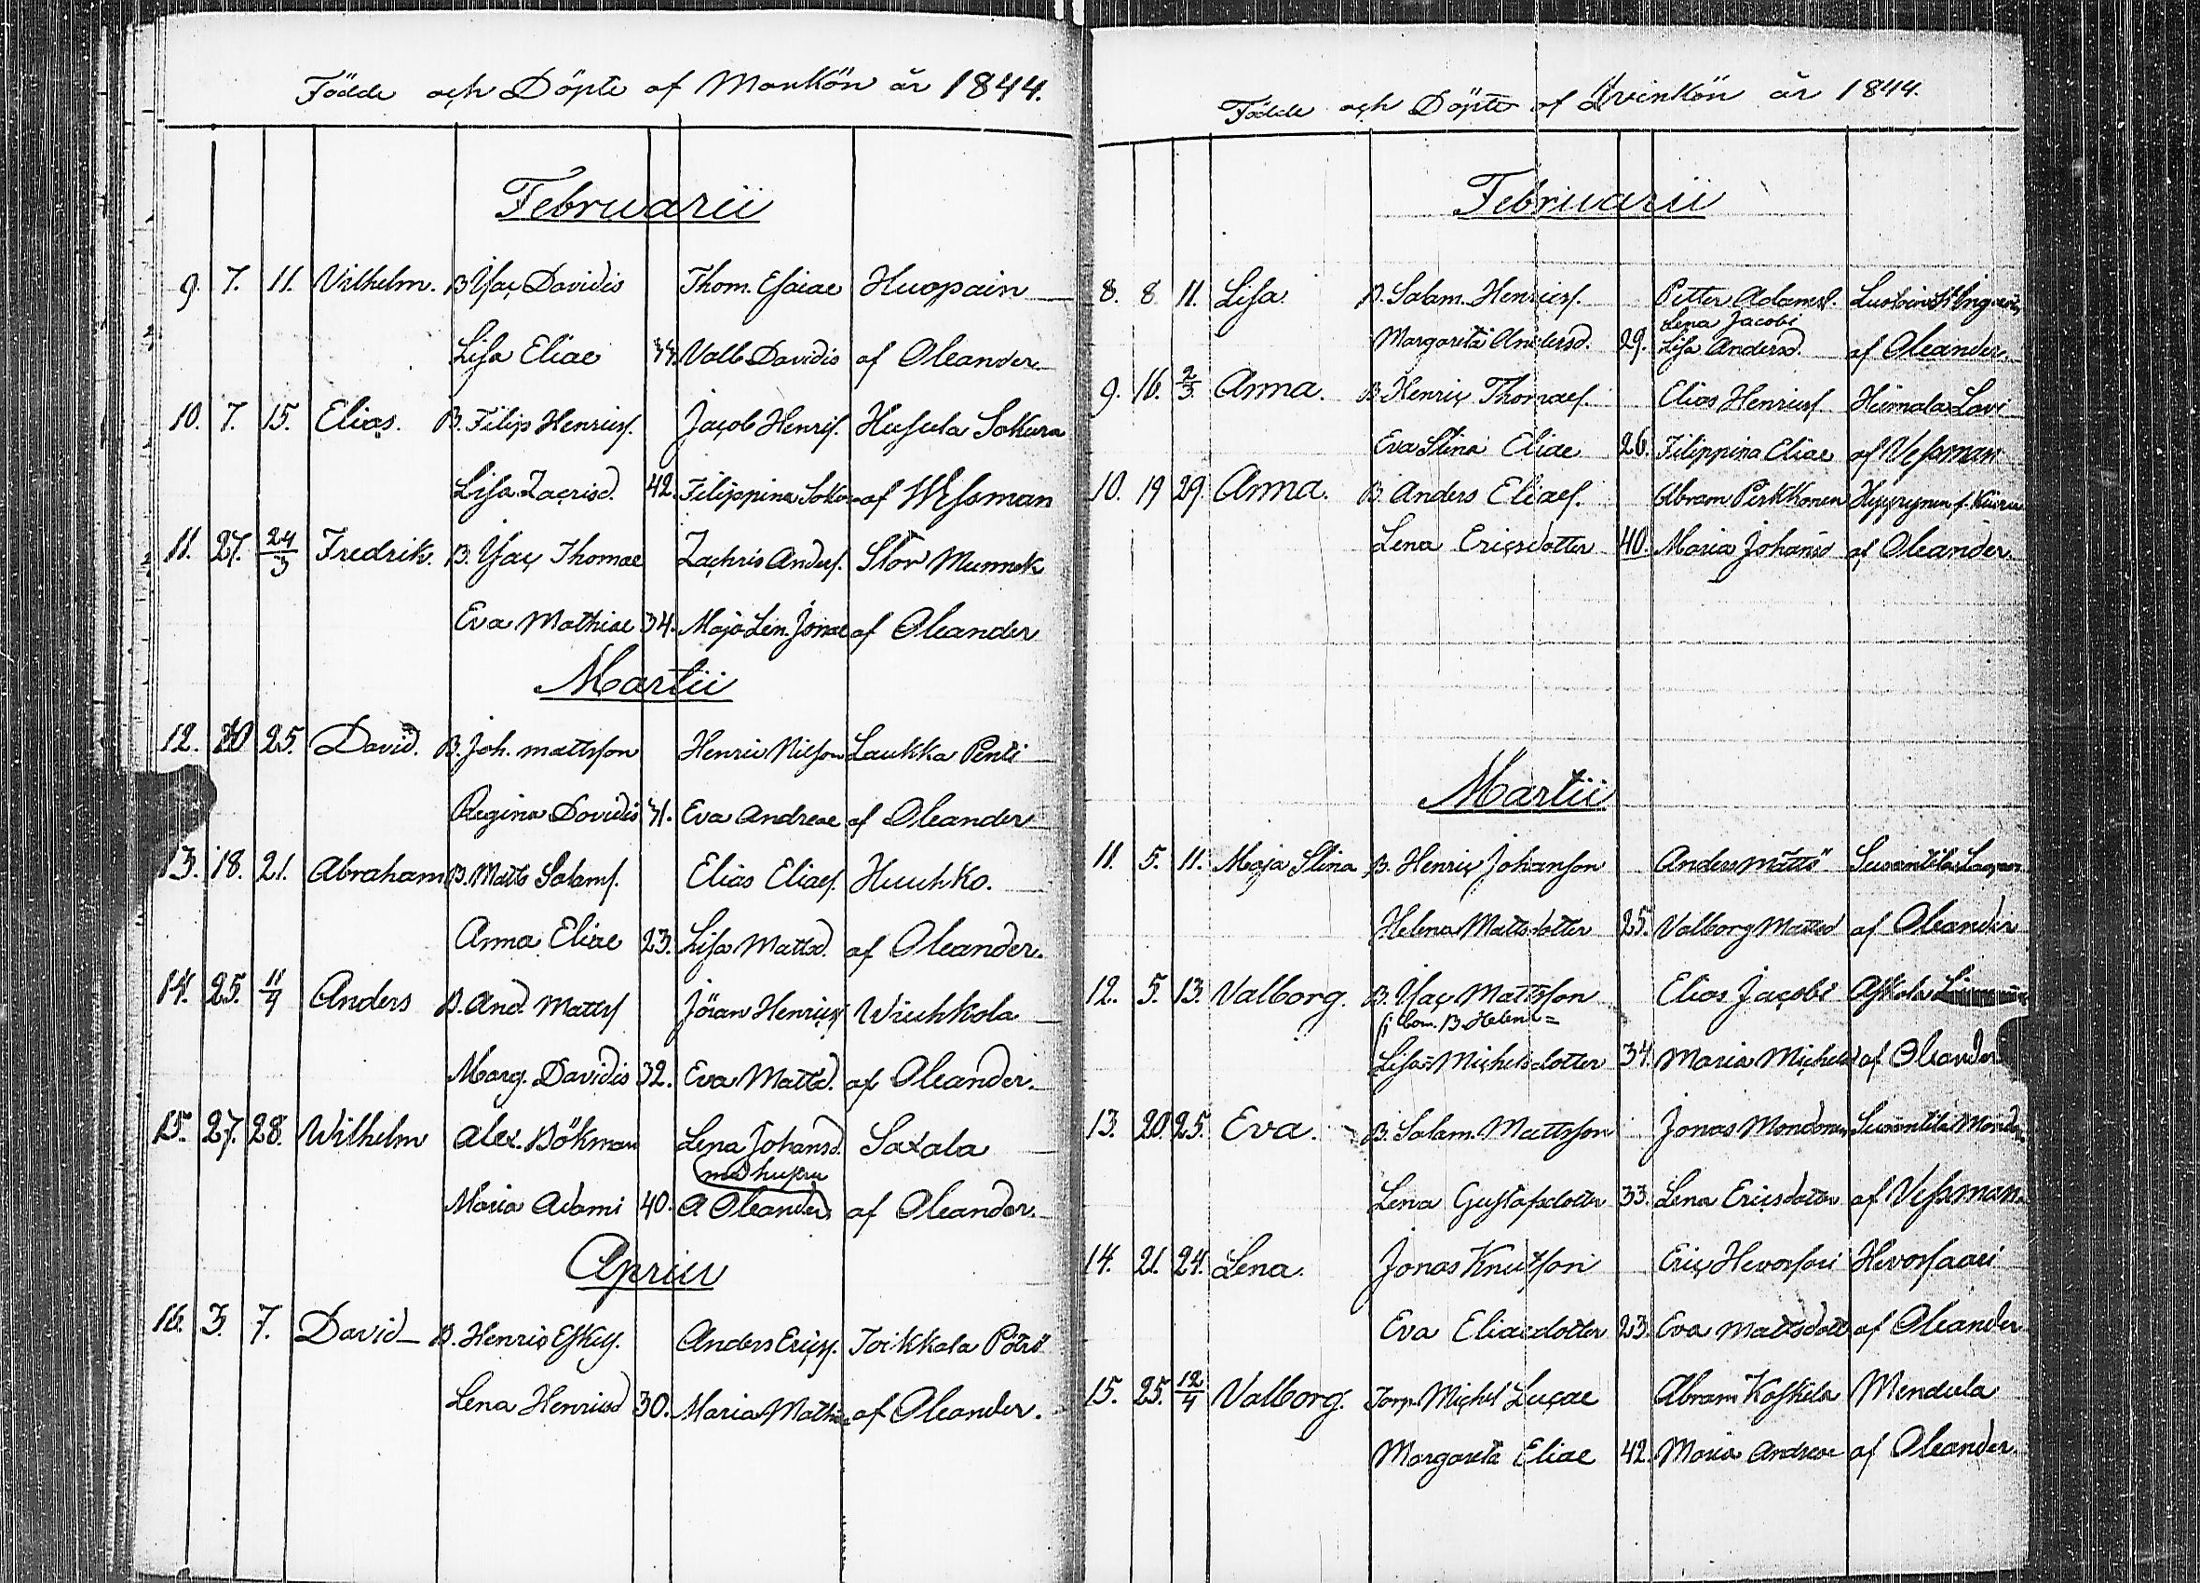 Födde och Döpte af Mankön år 1844.
Februarii
9. 7. 11. Vilhelm. B. Isac Davidis Thom. Esaiae Huopain
Lisa Eliae Valb Davidis af Oleander
10. 7. 15. Elias. B. Filip Henricss. Jacob Henrics. Husula Sokura
Lisa Zacrisd. 42. Filippina Soku af Wessman
11. 27. 24/3 Fredrik. B. Isac Thomae Zachris Anderss. Stor Munnok
Eva Mathiae 34. Maja Len. Jonae af Oleander
Martii
12. 25. David. B. Joh. mattsson Henric Nilsson Laukka Penti
Regina Davidis Eva Andreae af Oleander
13. 18. 21. Abraham B. Matts Salams. Elias Eliaes. Huuhko.
Anna Eliae 23. Lisa Mattsd. af Oleander.
14. 25. 11/4 Anders B. And. Mattss Jöran Henricss Wiuhkola
Marg. Davidis 32. Eva Mattsd. af Oleander.
15. 27. 28. Wilhelm Alex. Bökman Lena Johansd. Saxala
med hustru
Maria Adami 40. A Oleander af Oleander.
Aprili
16. 3. 7. David B. Henric Eskess. Anders Ericss. Toikkala Pötrö
Lena Henricsd 30. Maria Mathiae af Oleander.
Födde och Döpte af Qvinkön år 1844.
Februarii
8. 8 11. Lisa. B. Salam. Henricss. Petter Adamss.
Lena Jacobi
Margareta Andersd. 29. Lisa Andersd. af Oleander.
9. 16. 2/3 Anna. B. Henric Thomaes. Elias Henricss. Heimala Lavi
Eva Stina Eliae 26. Filippina Eliae af Vessman
10. 19 29. Anna. B. Anders Eliaes. Abram Pirkkonen
Lena Ericsdotter 40. Maria Johansd af Oleander.
Martii
11. 5. 11. Maja Stina B. Henric Johansson Anders matts
Helena Mattsdotter 25. Valborg Mattsd af Oleander
12. 5. 13. Valborg. B. Isac Mattsson Elias Jacobi Askola
Lisa Michelsdotter 34. Maria Michelsd af Oleander
13. 20. 25. Eva. B. Salam. Mattsson Jonas Mondonen
Lena Gustafsdotter 33. Lena Ericsdotter af Vessman.
14. 21. 24. Lena. Jonas Knutson Eric Hevossari Hevossaari
Eva Eliaedotter 23. Eva Mattsdott af Oleander
15. 25. 12/4 Valborg. Torp. Michel Lucae Abram Koskela Mendula
Margareta Eliae 42. Maria Andreae af Oleander.